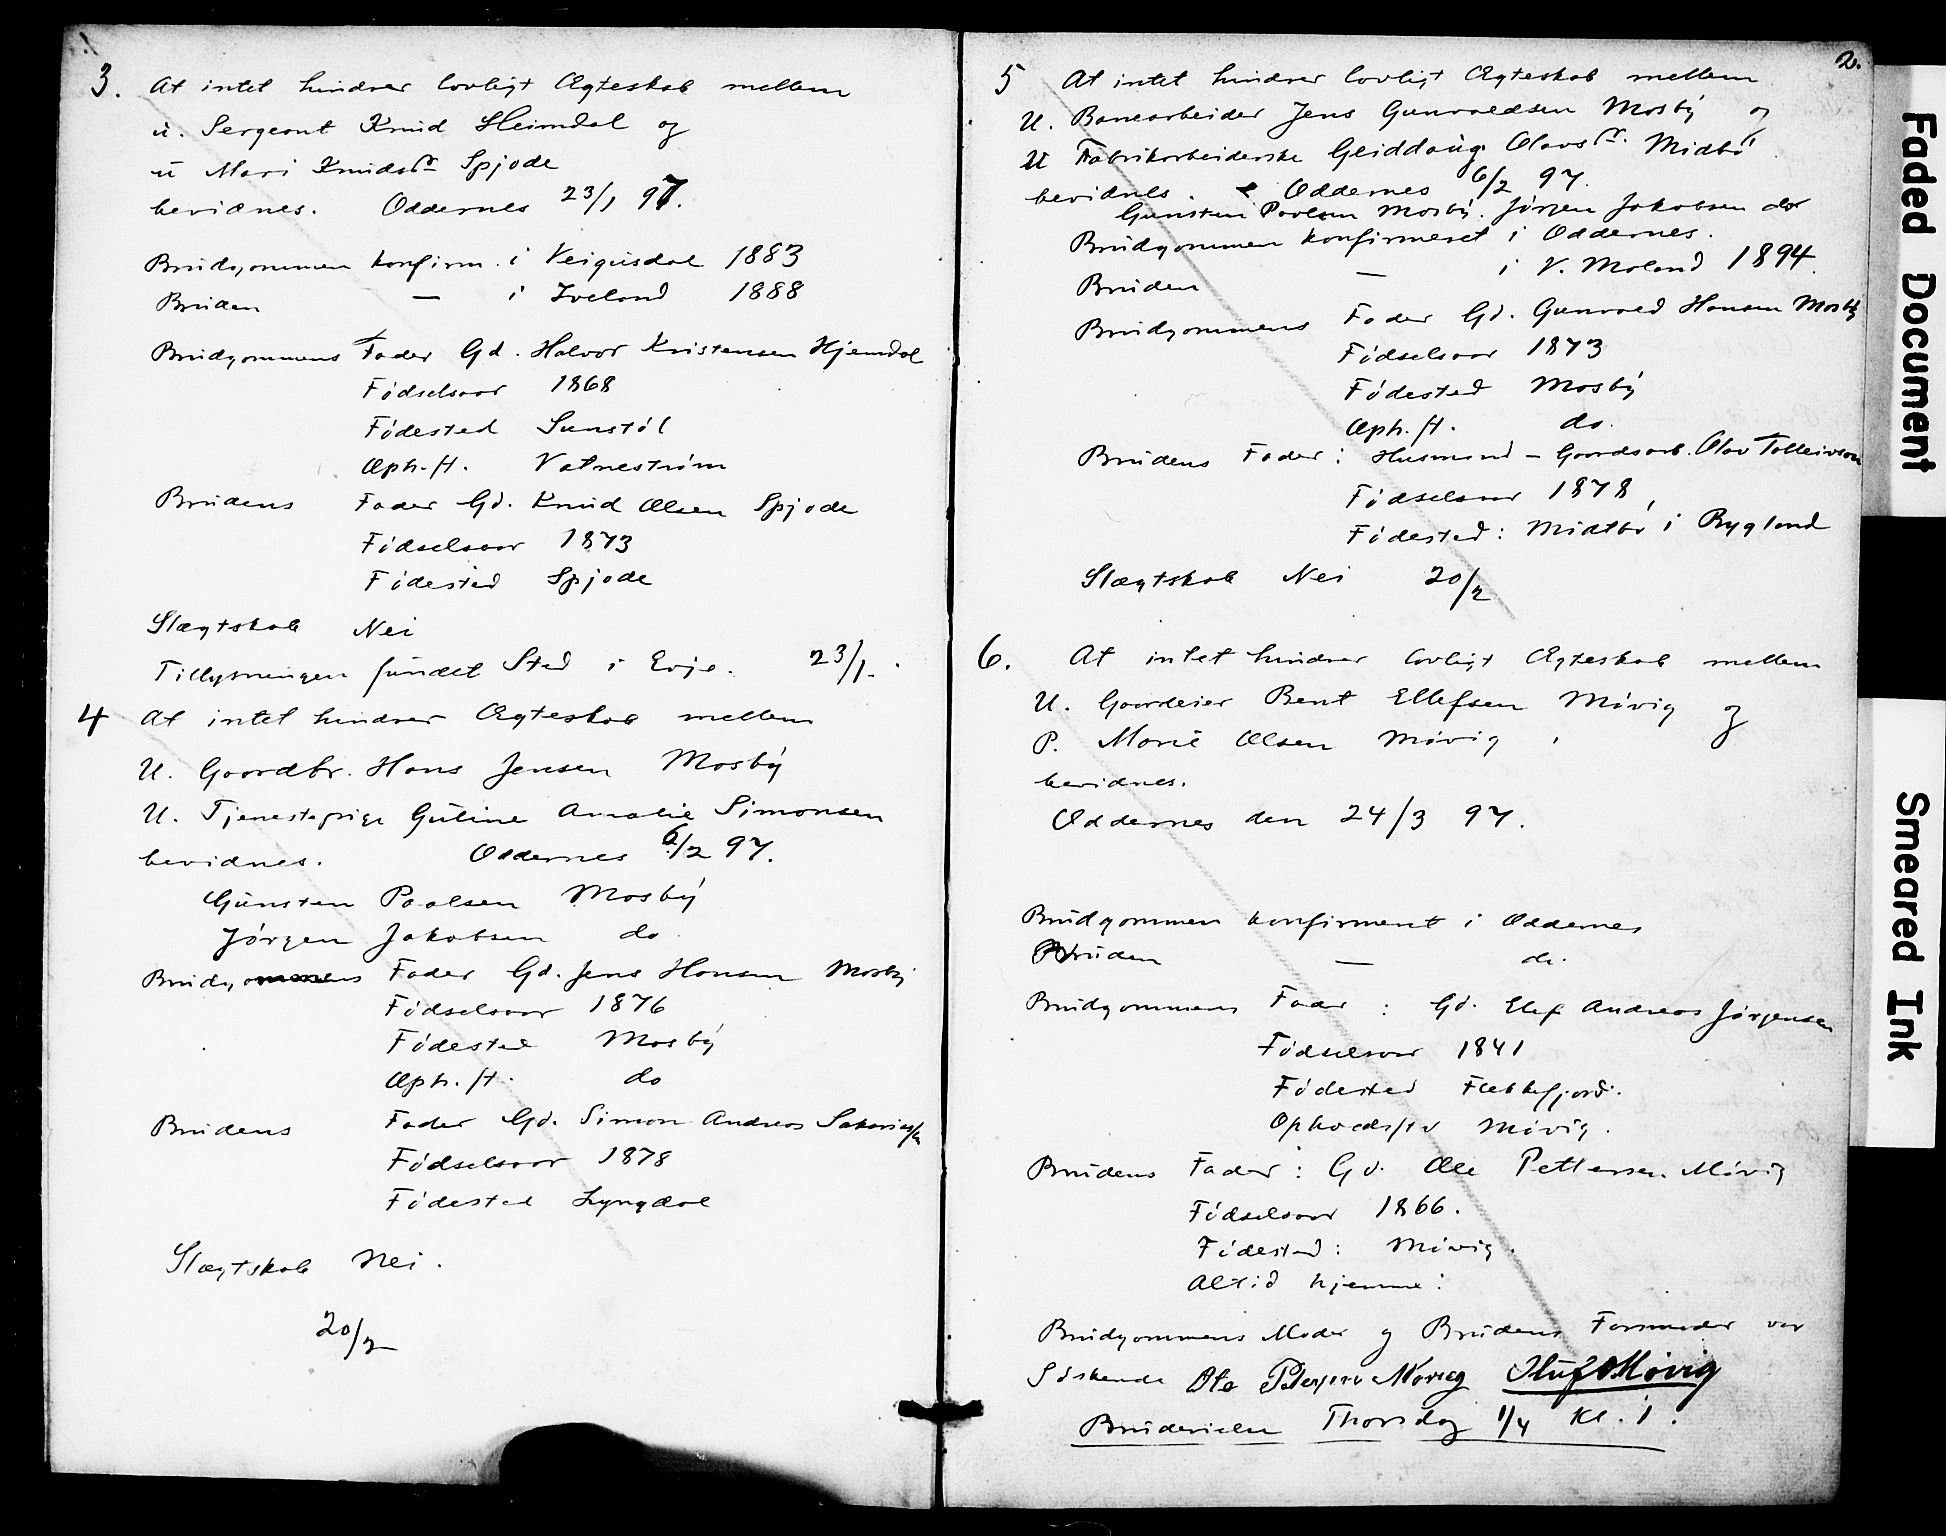 3. At intet hindrer lovligt Ægteskab mellem
u. Sergeant Knud Heimdal og
u Mari Knudsd. Spjode
bevidnes. Oddernes 23/1 97.
Brudgommen konfirm. i Veigusdal 1883
Bruden — i Iveland 1888
Brudgommens Fader Gd. Halvor Kristensen Hjemdal
Fødselsaar 1868
Fødested Sunstøl
Oph.st. Vatnestrøm
Brudens Fader Gd. Knud Olsen Spjode
Fødselsaar 1873
Fødested Spjode
Slægtskab Nei
Tillysningen fundet Sted i Evje. 23/1.
4 At intet hindrer Ægteskab mellem
U. Gaardbr. Hans Jensen Mosby
U. Tjenestepige Guline Amalie Simonsen
bevidnes. Oddernes 6/2 97.
Gunsten Paalsen Mosby
Jørgen Jakobsen do
Brudgommens Fader Gd. Jens Hansen Mosby
Fødselsaar 1876
Fødested Mosby
Oph.st. do
Brudens Fader Gd. Simon Andreas Sakariass.
Fødselsaar 1878
Fødested Lyngdal
Slægtskab Nei.
20/2
2.
5 At intet hindrer lovligt Ægteskab mellem
U. Banearbeider Jens Gunvaldsen Mosby og
U Fabrikarbeiderske Geiddaug Olavsd. Midtbø
bevidnes. Oddernes 6/2 97.
Gunsten Paalsen Mosby. Jørgen Jakobsen do
Brudgommen konfirmeret i Oddernes.
Bruden — i V. Moland 1894.
Brudgommens Fader Gd. Gunvald Hansen Mosby
Fødselsaar 1873
Fødested Mosby
Oph.st. do.
Brudens Fader: Husmand - Gaardsarb. Olav Tolleivsen
Fødselsaar 1878,
Fødested: Midtbø i Bygland
Slægtskab Nei 20/2
6. At intet hindrer lovligt Ægteskab mellem
U. Gaardeier Bent Ellefsen Møvig og
P. Marie Olsen Møvig,
bevidnes.
Oddernes den 24/3 97.
Brudgommen konfirmeret i Oddernes
Bruden — do.
Brudgommens Fader: Gd. Elef Andreas Jørgensen
Fødselsaar 1841
Fødested Flekkefjord.
Opholdsst Møvig.
Brudens Fader: Gd. Ole Pettersen Møvig
Fødselsaar 1866.
Fødested: Møvig.
Altid hjemme:
Brudgommens Moder og Brudens Farmoder var
Søskende Ole Petersen Møvig Oluf O Møvig
Brudevielse Thorsdag 1/4 Kl. 1.
Faded Document
Smeared Ink